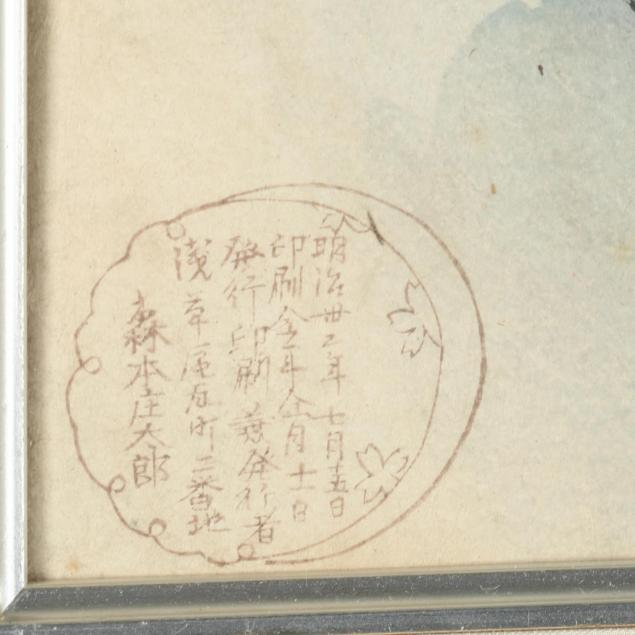 明治卅二年七月十五日
印刷仝年仝月十一日
発行印刷兼発行者
浅草瓦町二番地
森本庄太郎